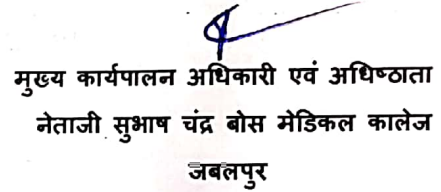 मुख्य कार्यपालन अधिकारी एवं अधिष्ठाता
नेताजी सुभाष चंद्र बोस मेडिकल कालेज
जबलपुर